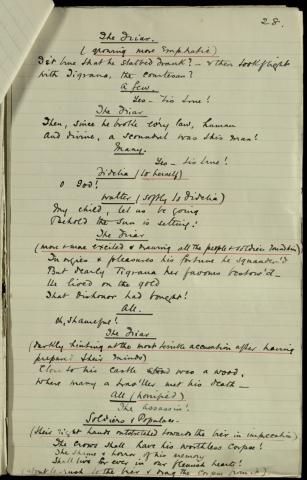 28.
The Friar.
(growing more emphatic)
Is't true that he stabbed Frank? – & then took flight
with Tigrana, the courtesan?
A few.
Yes – tis true!
The Friar
Then, since he broke every law, human
And divine, a scoundrel was this man!
Many.
Yes – tis true!
Fidelia (to herself)
O God!
Walter (softly to Fidelia)
My child, let us be going
Behold the sun is setting!
The Friar
(more & more excited & having all the people & soldiers
In orgies & pleasures his fortune he squander'd
But dearly Tigrana her favours bestow'd –
He lived on the gold
That dishonor had bought!
All.
Oh, shameful!
The Friar
(darkly hinting at the most terrible accusation after having
prepar'd their minds)
Close to his castle was a wood,
Where many a trav'ller met his death –
All (horrified)
The assassin!
Soldiers & Populace.
(their right hands outstretched towards the bier in imprecation)
The crows shall have his worthless corpse!
The shame & horror of his memory
Shall live for ever in our Flemish hearts!
(about to rush to the bier & drag the corpse from it)